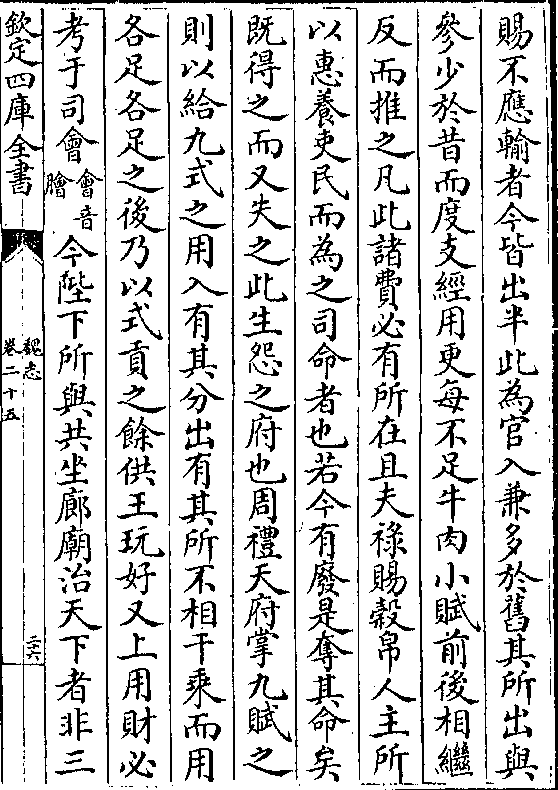 賜不應輸者今皆出半此為官入兼多於舊其所出與
參少於昔而度支經用更每不足牛肉小賦前後相繼
反而推之凡此諸費必有所在且夫祿賜糓帛人主所
以惠養吏民而為之司命者也若今有廢是奪其命矣
既得之而又失之此生怨之府也周禮天府掌九賦之
則以給九式之用入有其分出有其所不相干乘而用
各足各足之後乃以式貢之餘供王玩好又上用財必
考于司會會音膾今陛下所與共坐廊廟治天下者非三
欽定四庫全書
魏志
卷二十五
二十六